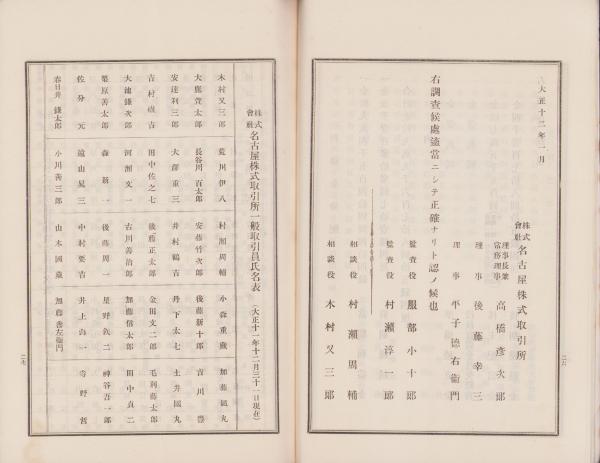 大正十二年一月
株式會社 名古屋株式取引所
理事長兼常務理事 高橋彦次郎
理事 後藤幸三
理事 平子德右衞門
右調查候處適當ニシテ正確ナリト認メ候也
監查役 服部小十郎
監查役 村瀨淳一郎
相談役 村瀨周輔
相談役 木村又三郎
二六
株式會社 名古屋株式取引所一般取引員氏名表（大正十一年十二月三十一日現在）
木村又三郎 荒川伊八 村瀨周輔 小森重藏 加藤國丸
大鹿萱太郎 長谷川百太郎 安藤竹次郎 後藤新十郎 吉川豊
安達利三郎 大澤重三 井村鶴吉 丹下太七 土井國丸
吉村 田中佐之七 後藤正太郎 金田文一郎 毛利藤太郎
大池鎌次郎 河瀨文一 古川善治郎 加藤信太郎 田中貞二
栗原善太郎 森新一 後藤周一 星野鉄二 神谷吾一郎
佐分元 遠山晃三 中村要吉 井上 寺野
春日井鎌太郎 小川善三郎 山本國 加藤善左衞門
二七